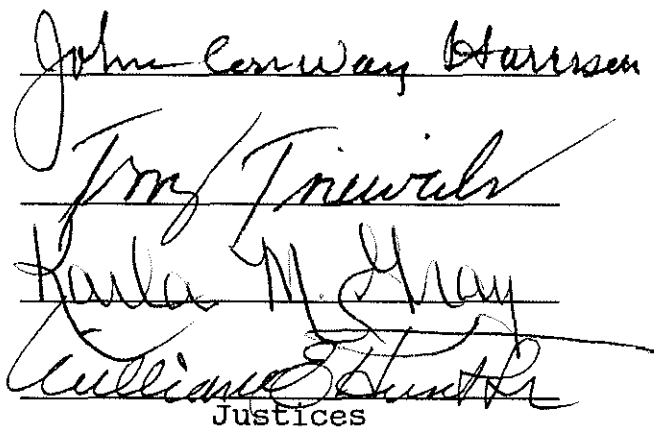 John Conway Harrison
Terry Trieweiler
Karla M. Gray
William E Hunt Sr
Justices